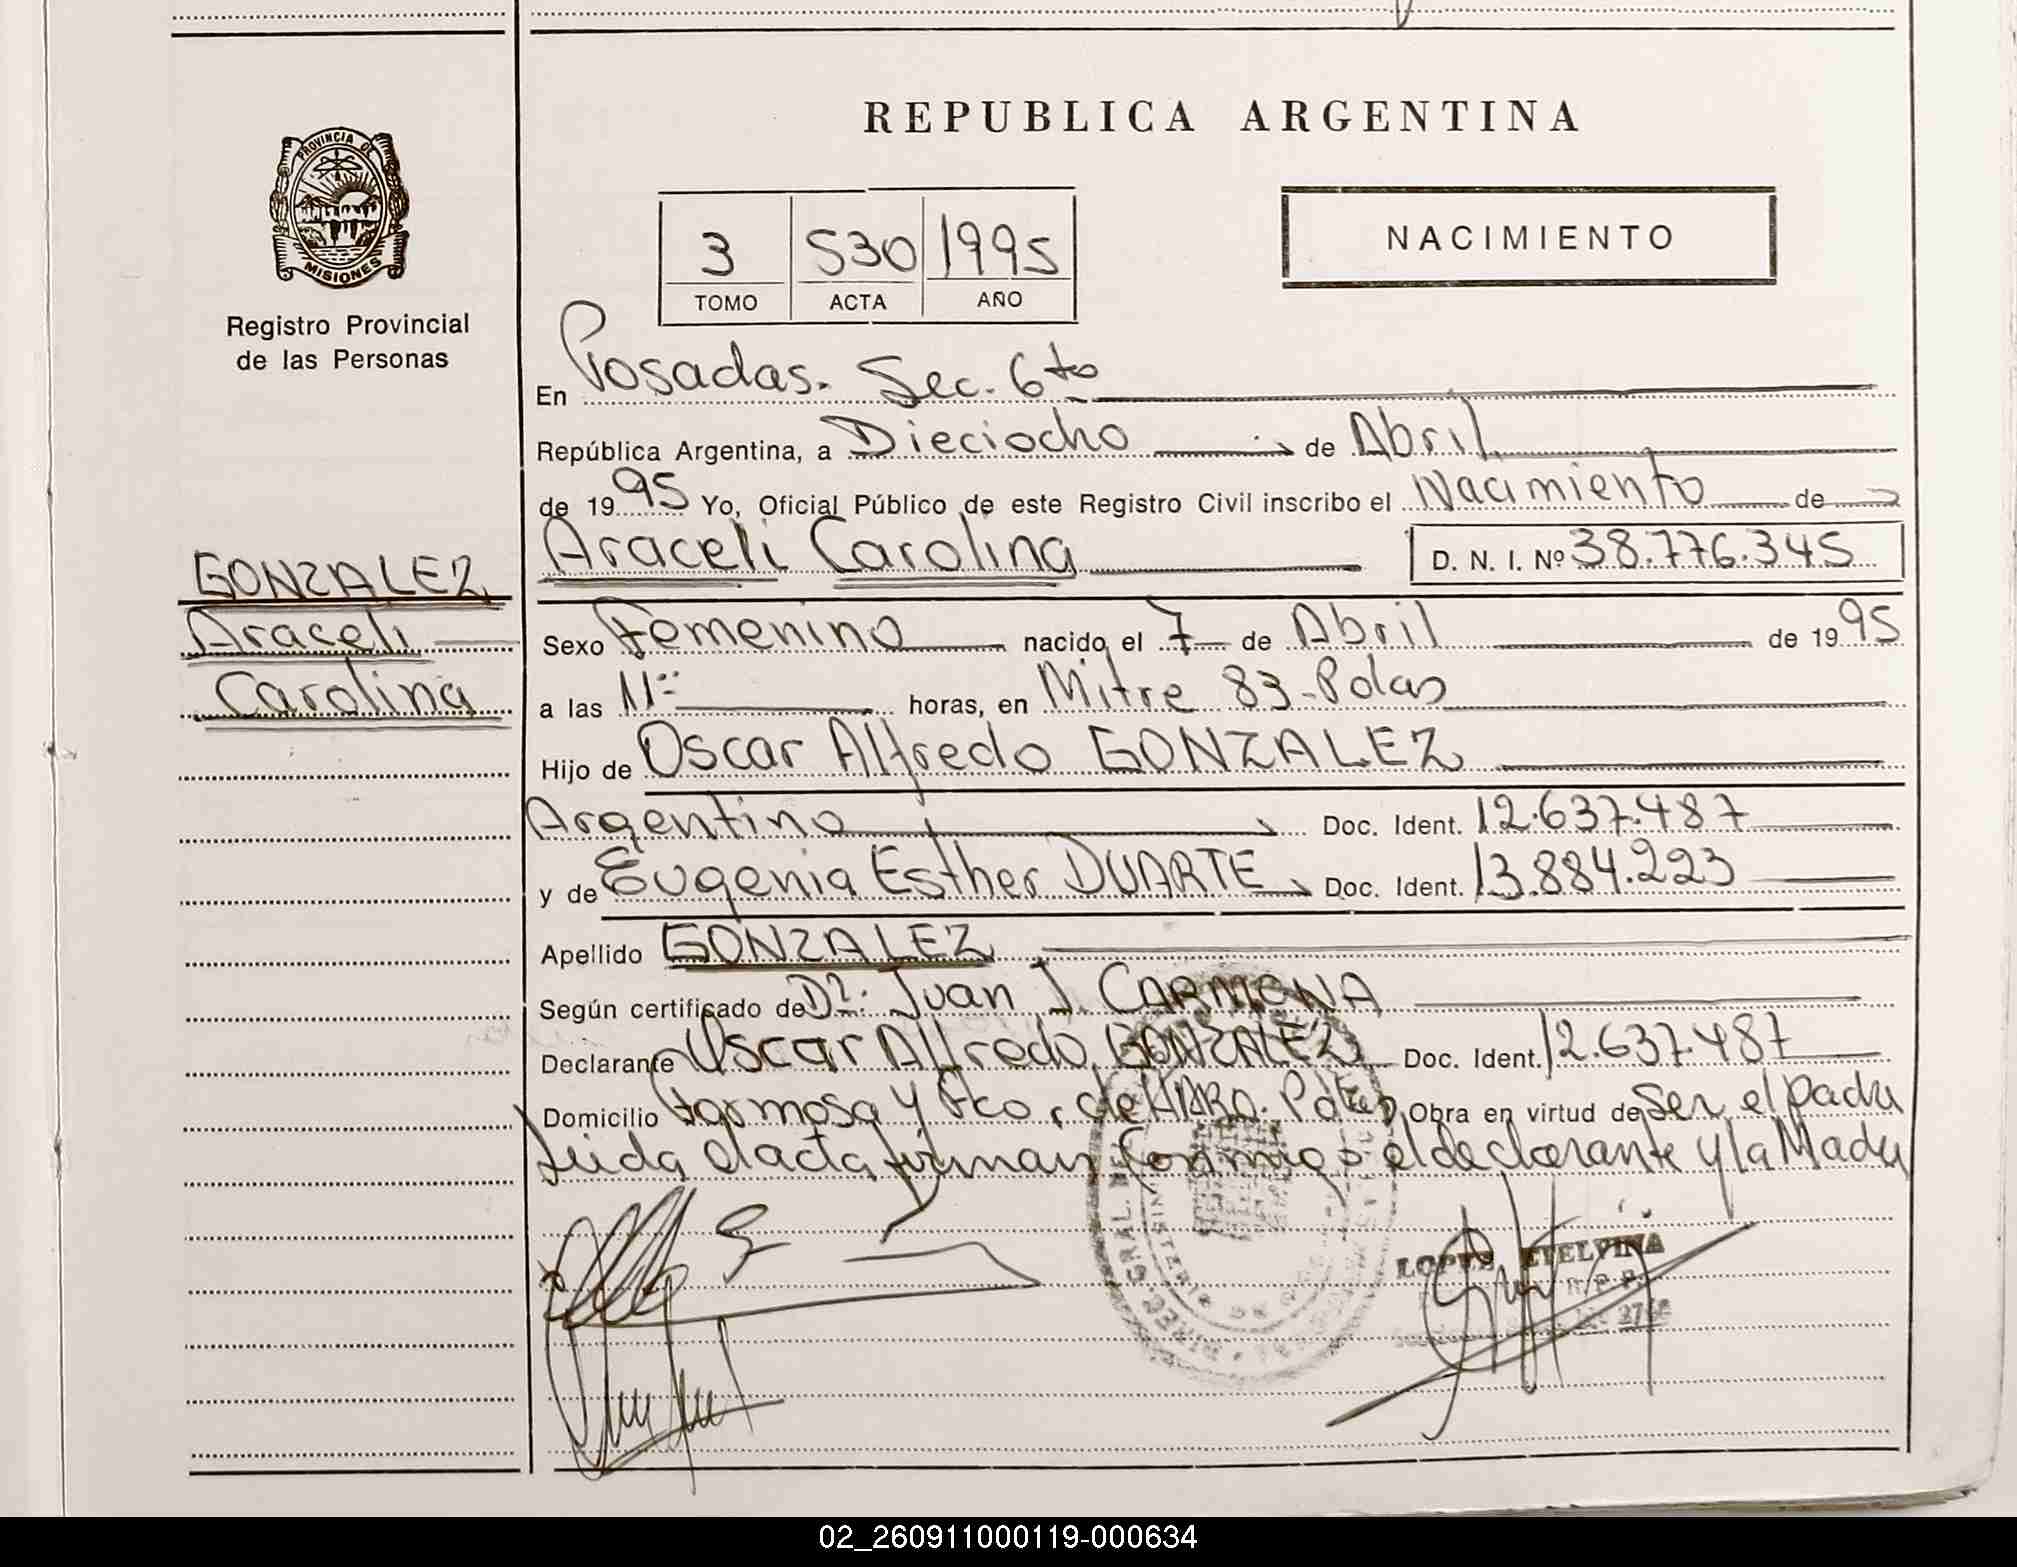 REPUBLICA ARGENTINA
PROVINCIA DE
MISIONES
Registro Provincial
de las Personas
3 530 1995
TOMO ACTA AÑO
NACIMIENTO
En Posadas. Sec. 6ta
República Argentina, a Dieciocho de Abril
de 1995 Yo, Oficial Público de este Registro Civil inscribo el Nacimiento de
GONZALEZ
Araceli
Carolina
Araceli Carolina D. N. I. Nº 38.776.345
Sexo Femenino nacido el 7 de Abril de 1995
a las 11 horas, en Mitre 83-Pdas
Hijo de Oscar Alfredo GONZALEZ
Argentino Doc. Ident. 12.637.487
y de Eugenia Esther DUARTE Doc. Ident. 13.884.223
Apellido GONZALEZ
Según certificado de Dr. Juan J. CARMONA
Declarante Oscar Alfredo GONZALEZ Doc. Ident. 12.637.487
Domicilio Formosa y Fco. de HARO. Pdas Obra en virtud de ser el padre
Leida el acta firman conmigo el declarante y la Madre
LOPES ETELVINA
02_260911000119-000634